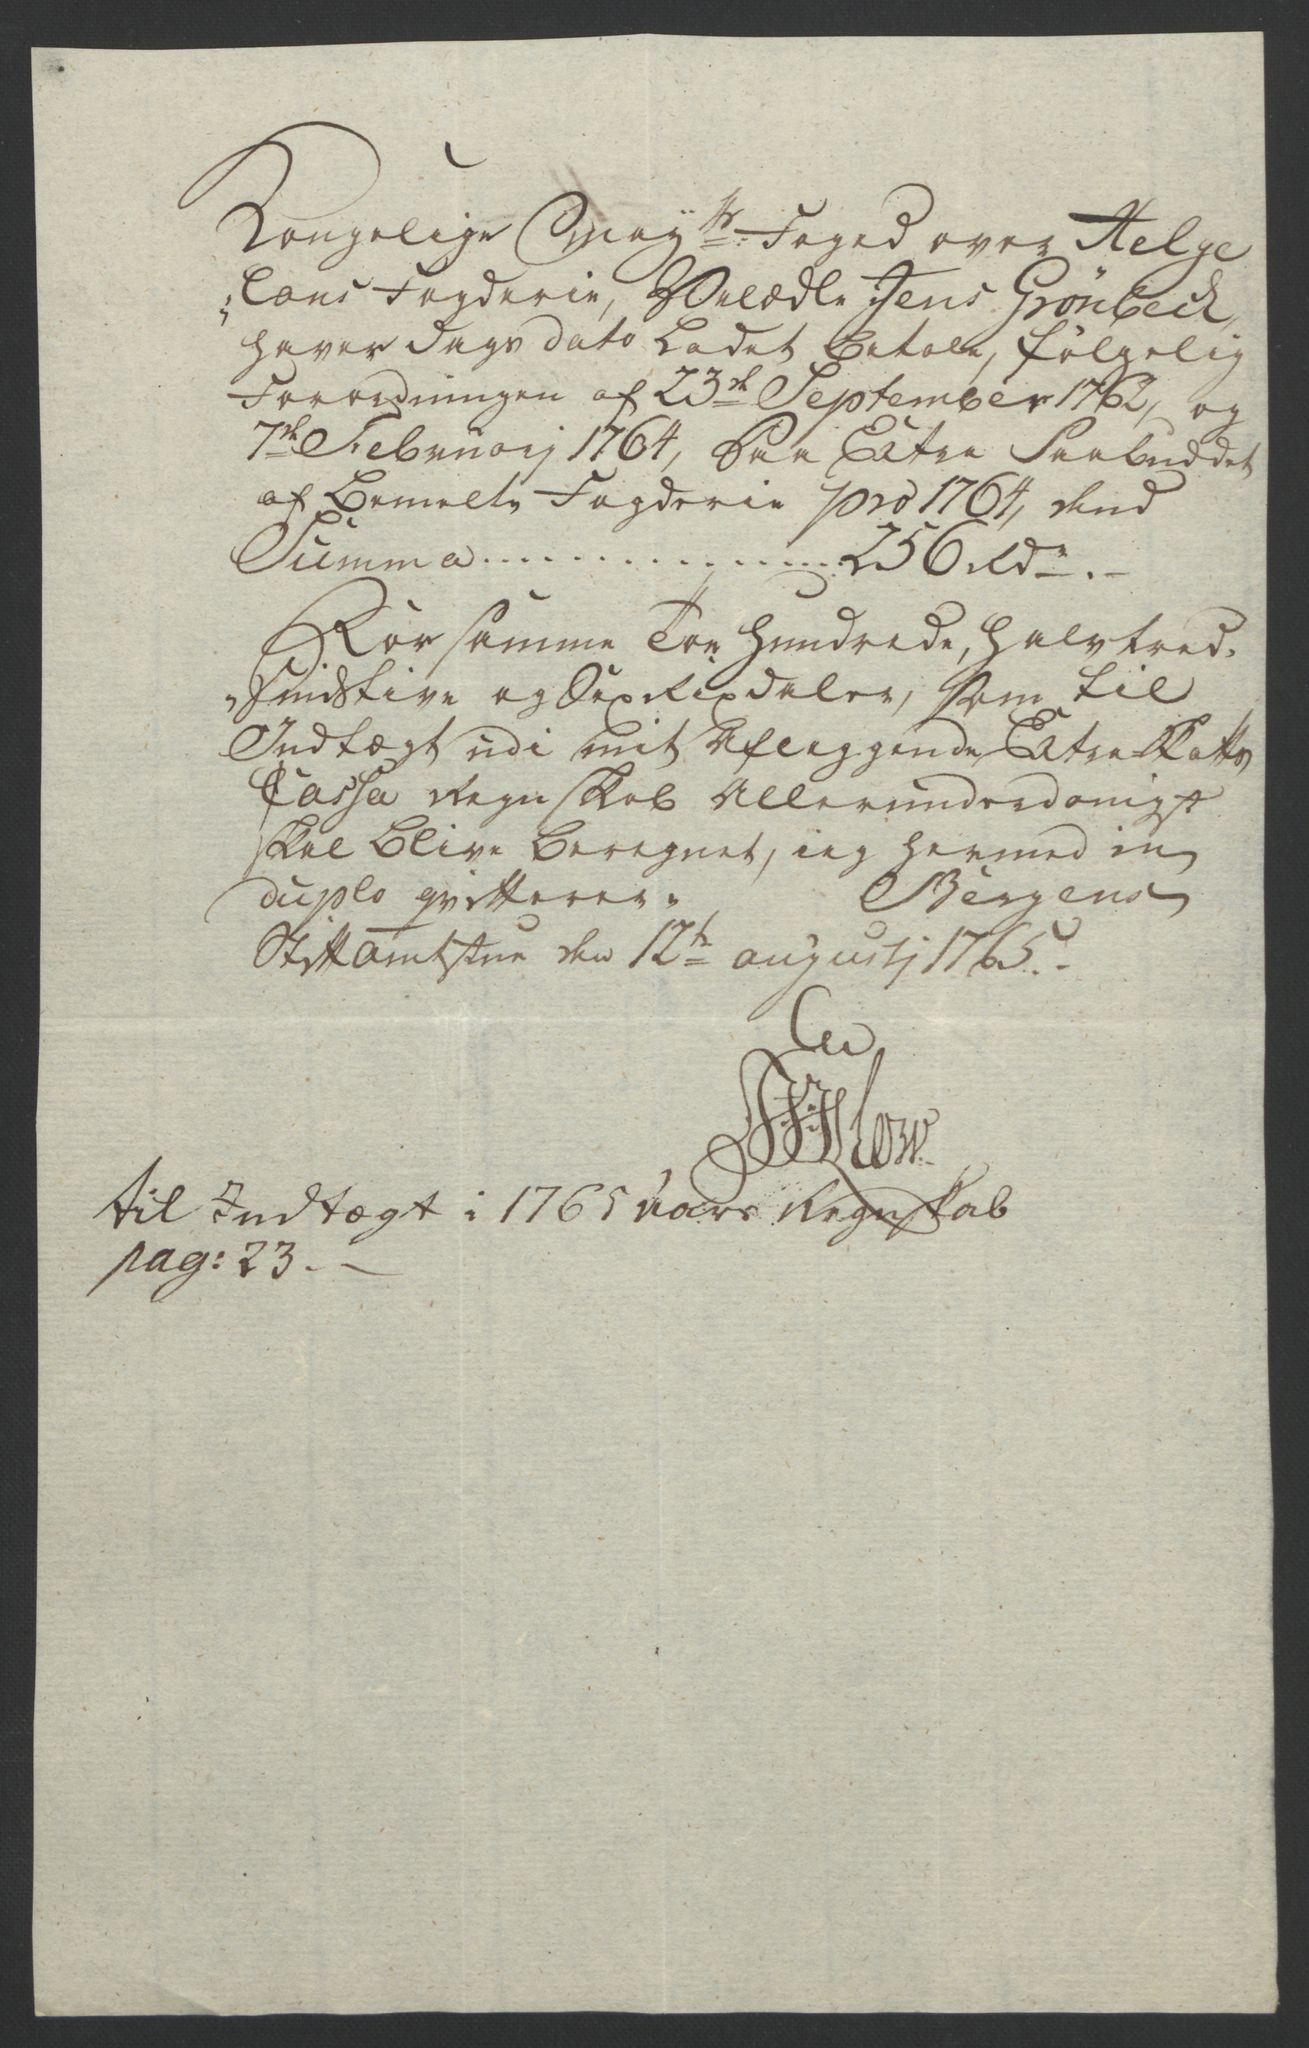 Kongelige May:ts Foged over Helge
„lans Fogderie, Velædle Jens Grönbeck,
haver dags dato Ladet betale, følgelig
Forordningen af 23de September 1762, og
7de Februarij 1764, Paa Extra Paabuddet
af bemelte Fogderie pro 1764, dend
Summa . . . . . . . . . . . . . . . 256 Rdr. –
For samme Toe Hundrede, halvtred-
„sindstive og Sex Rixdaler, som til
Indtægt udi mit Aflæggende Extra Skatts
Cassa Regnskab Allerunderdanigst
skal blive beregnet, ieg hermed in
duplo qvitterer. Bergens
Stiftamtstue den 12te augustj 1765. –
til Indtægt i 1765 aars Regnskab
pag: 23. –